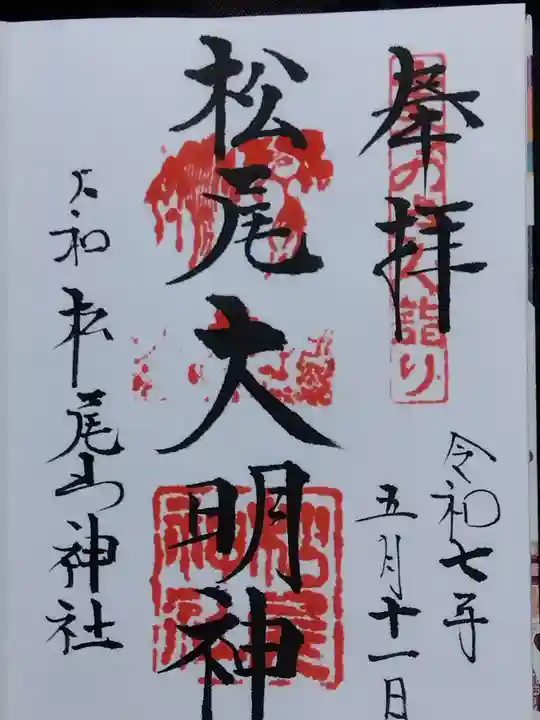 奉拝
令和七年
五月十一日
松尾大明神
大和
松尾山神社